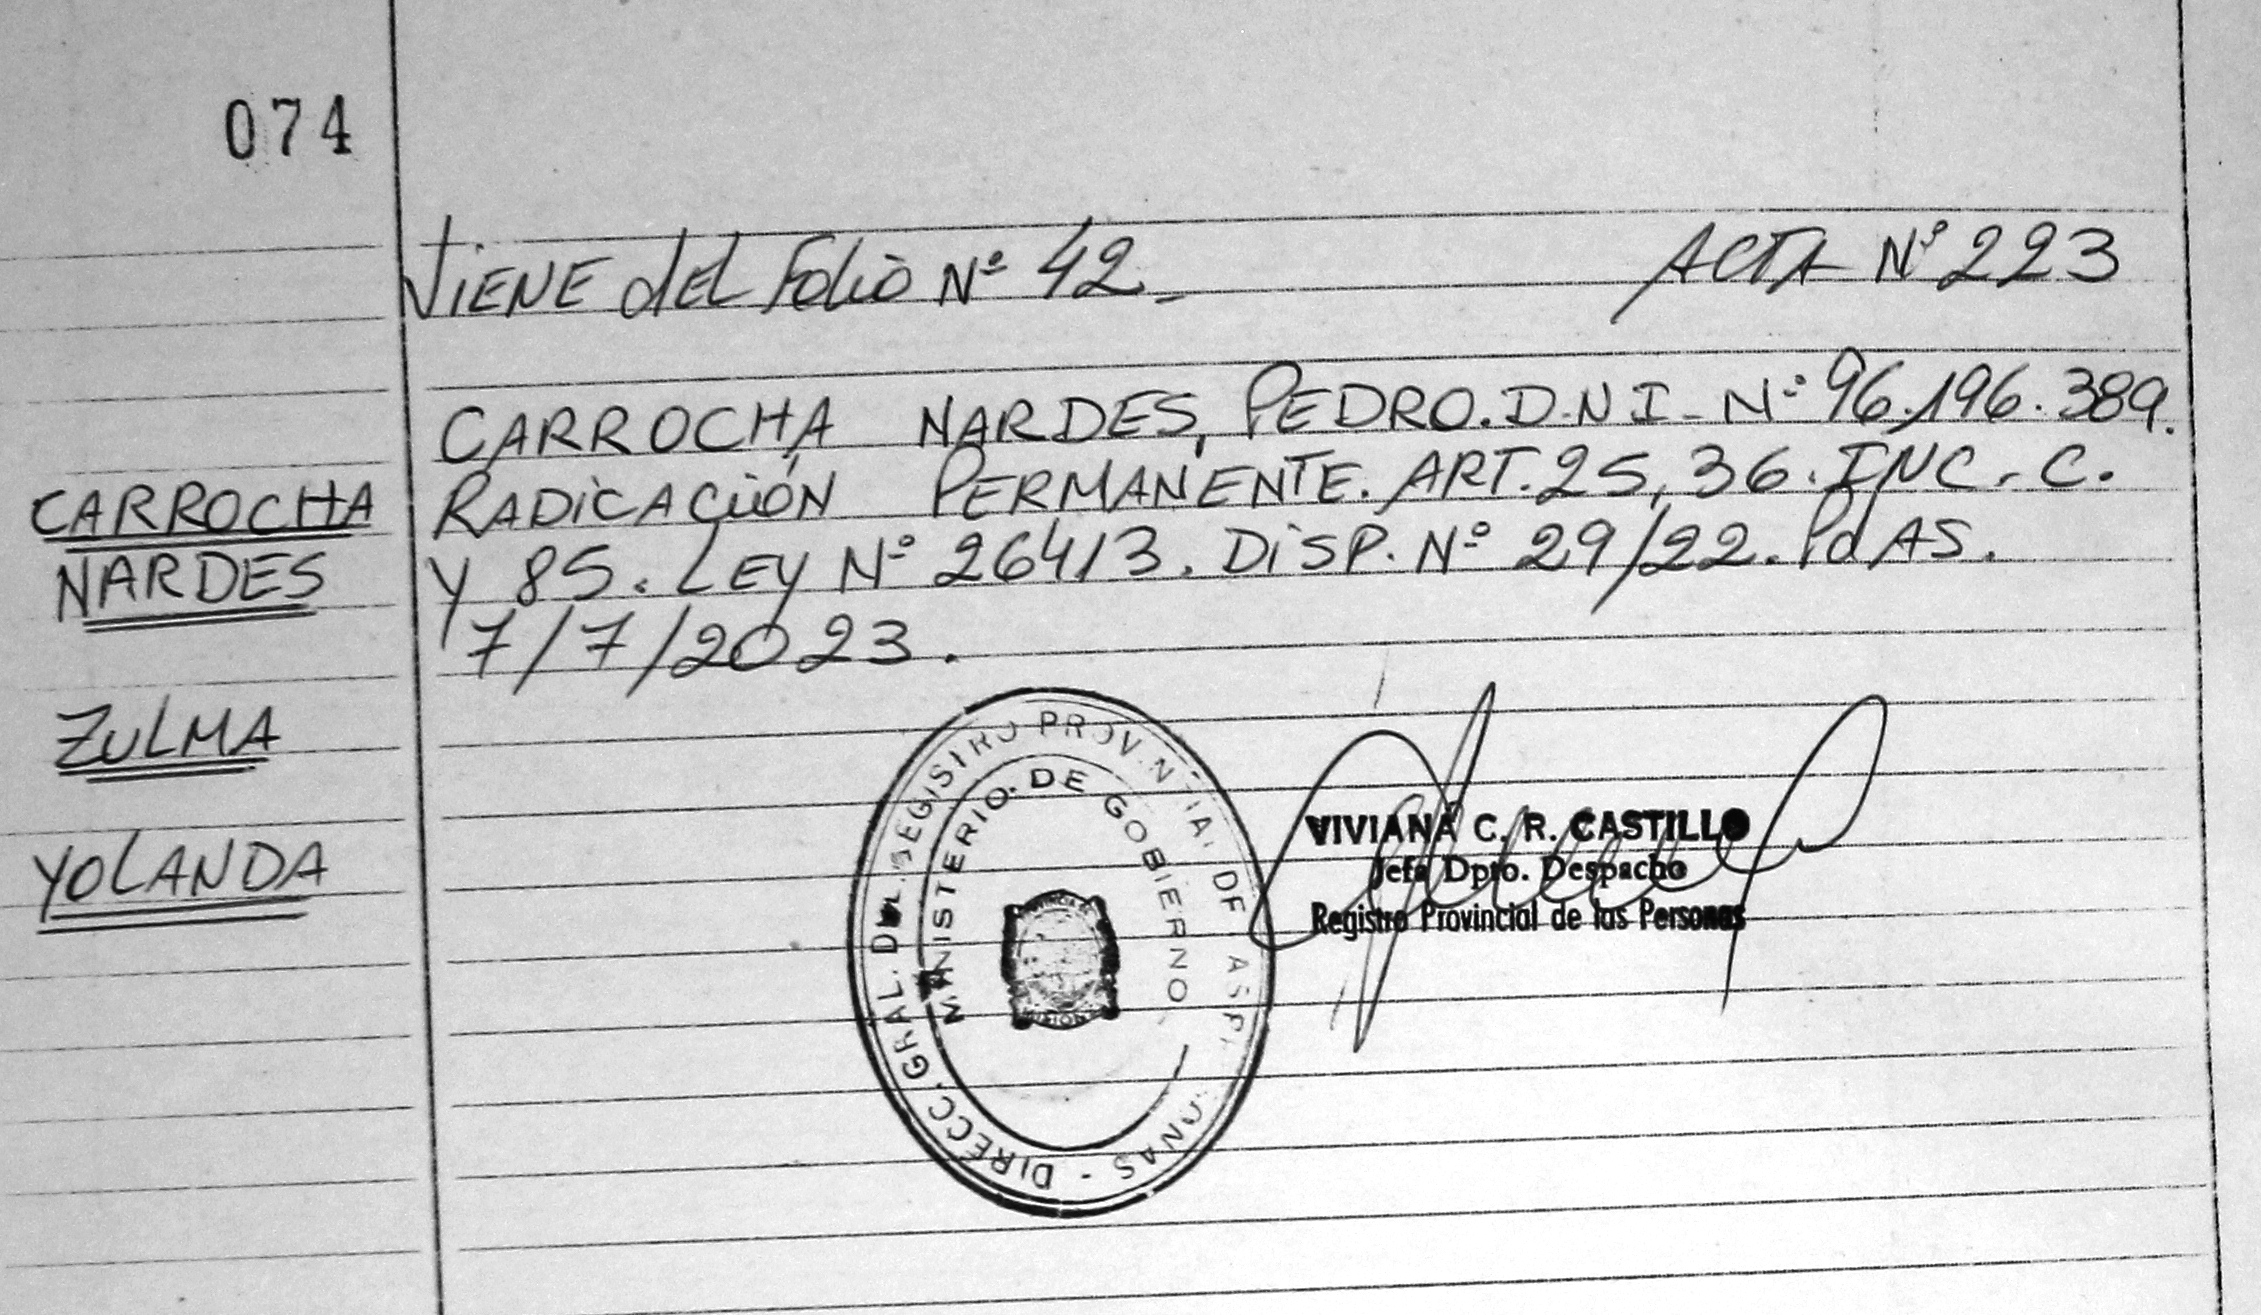 074
VIENE del Folio Nº 42_
ACTA Nº 223
CARROCHA NARDES, PEDRO. D.N.I_ Nº 96.196.389.
RADICACIÓN PERMANENTE. ART. 25, 36. INC. C.
Y 85. LEY Nº 26413. DISP. Nº 29/22. PdAS.
7/7/2023.
CARROCHA
NARDES
ZULMA
YOLANDA
MINISTERIO DE GOBIERNO
VIVIANA C. R. CASTILLO
Jefa Dpto. Despacho
Registro Provincial de las Personas